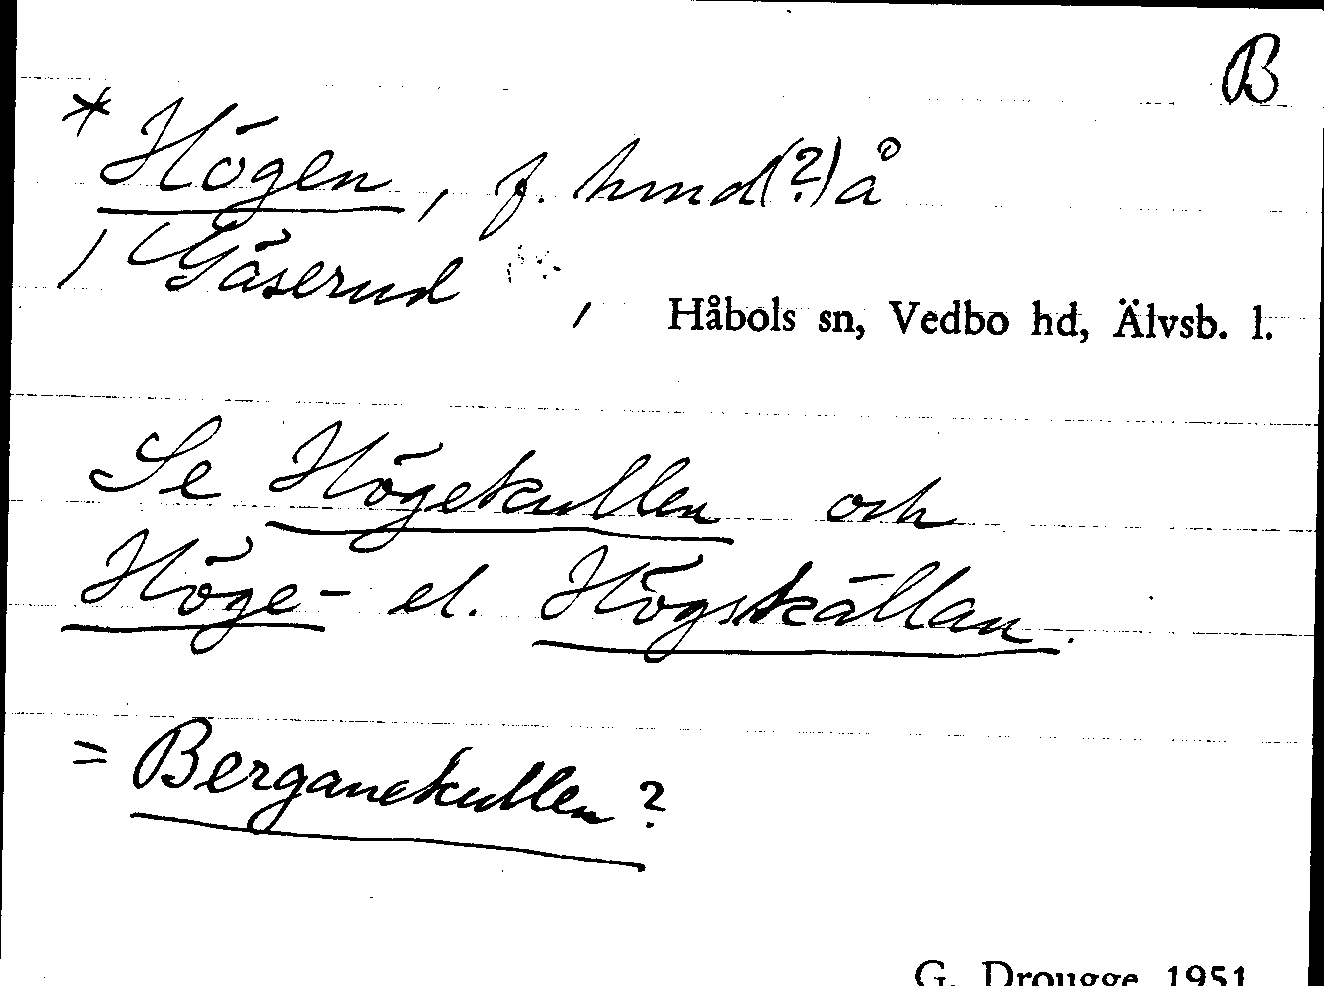 B
* Högen, f. hmd(?) å
/ Gåserud, Håbols sn, Vedbo hd, Älvsb. l.
Se Högekullen och
Höge- el. Högskällan.
= Berganekullen?
G. Drougge 1951